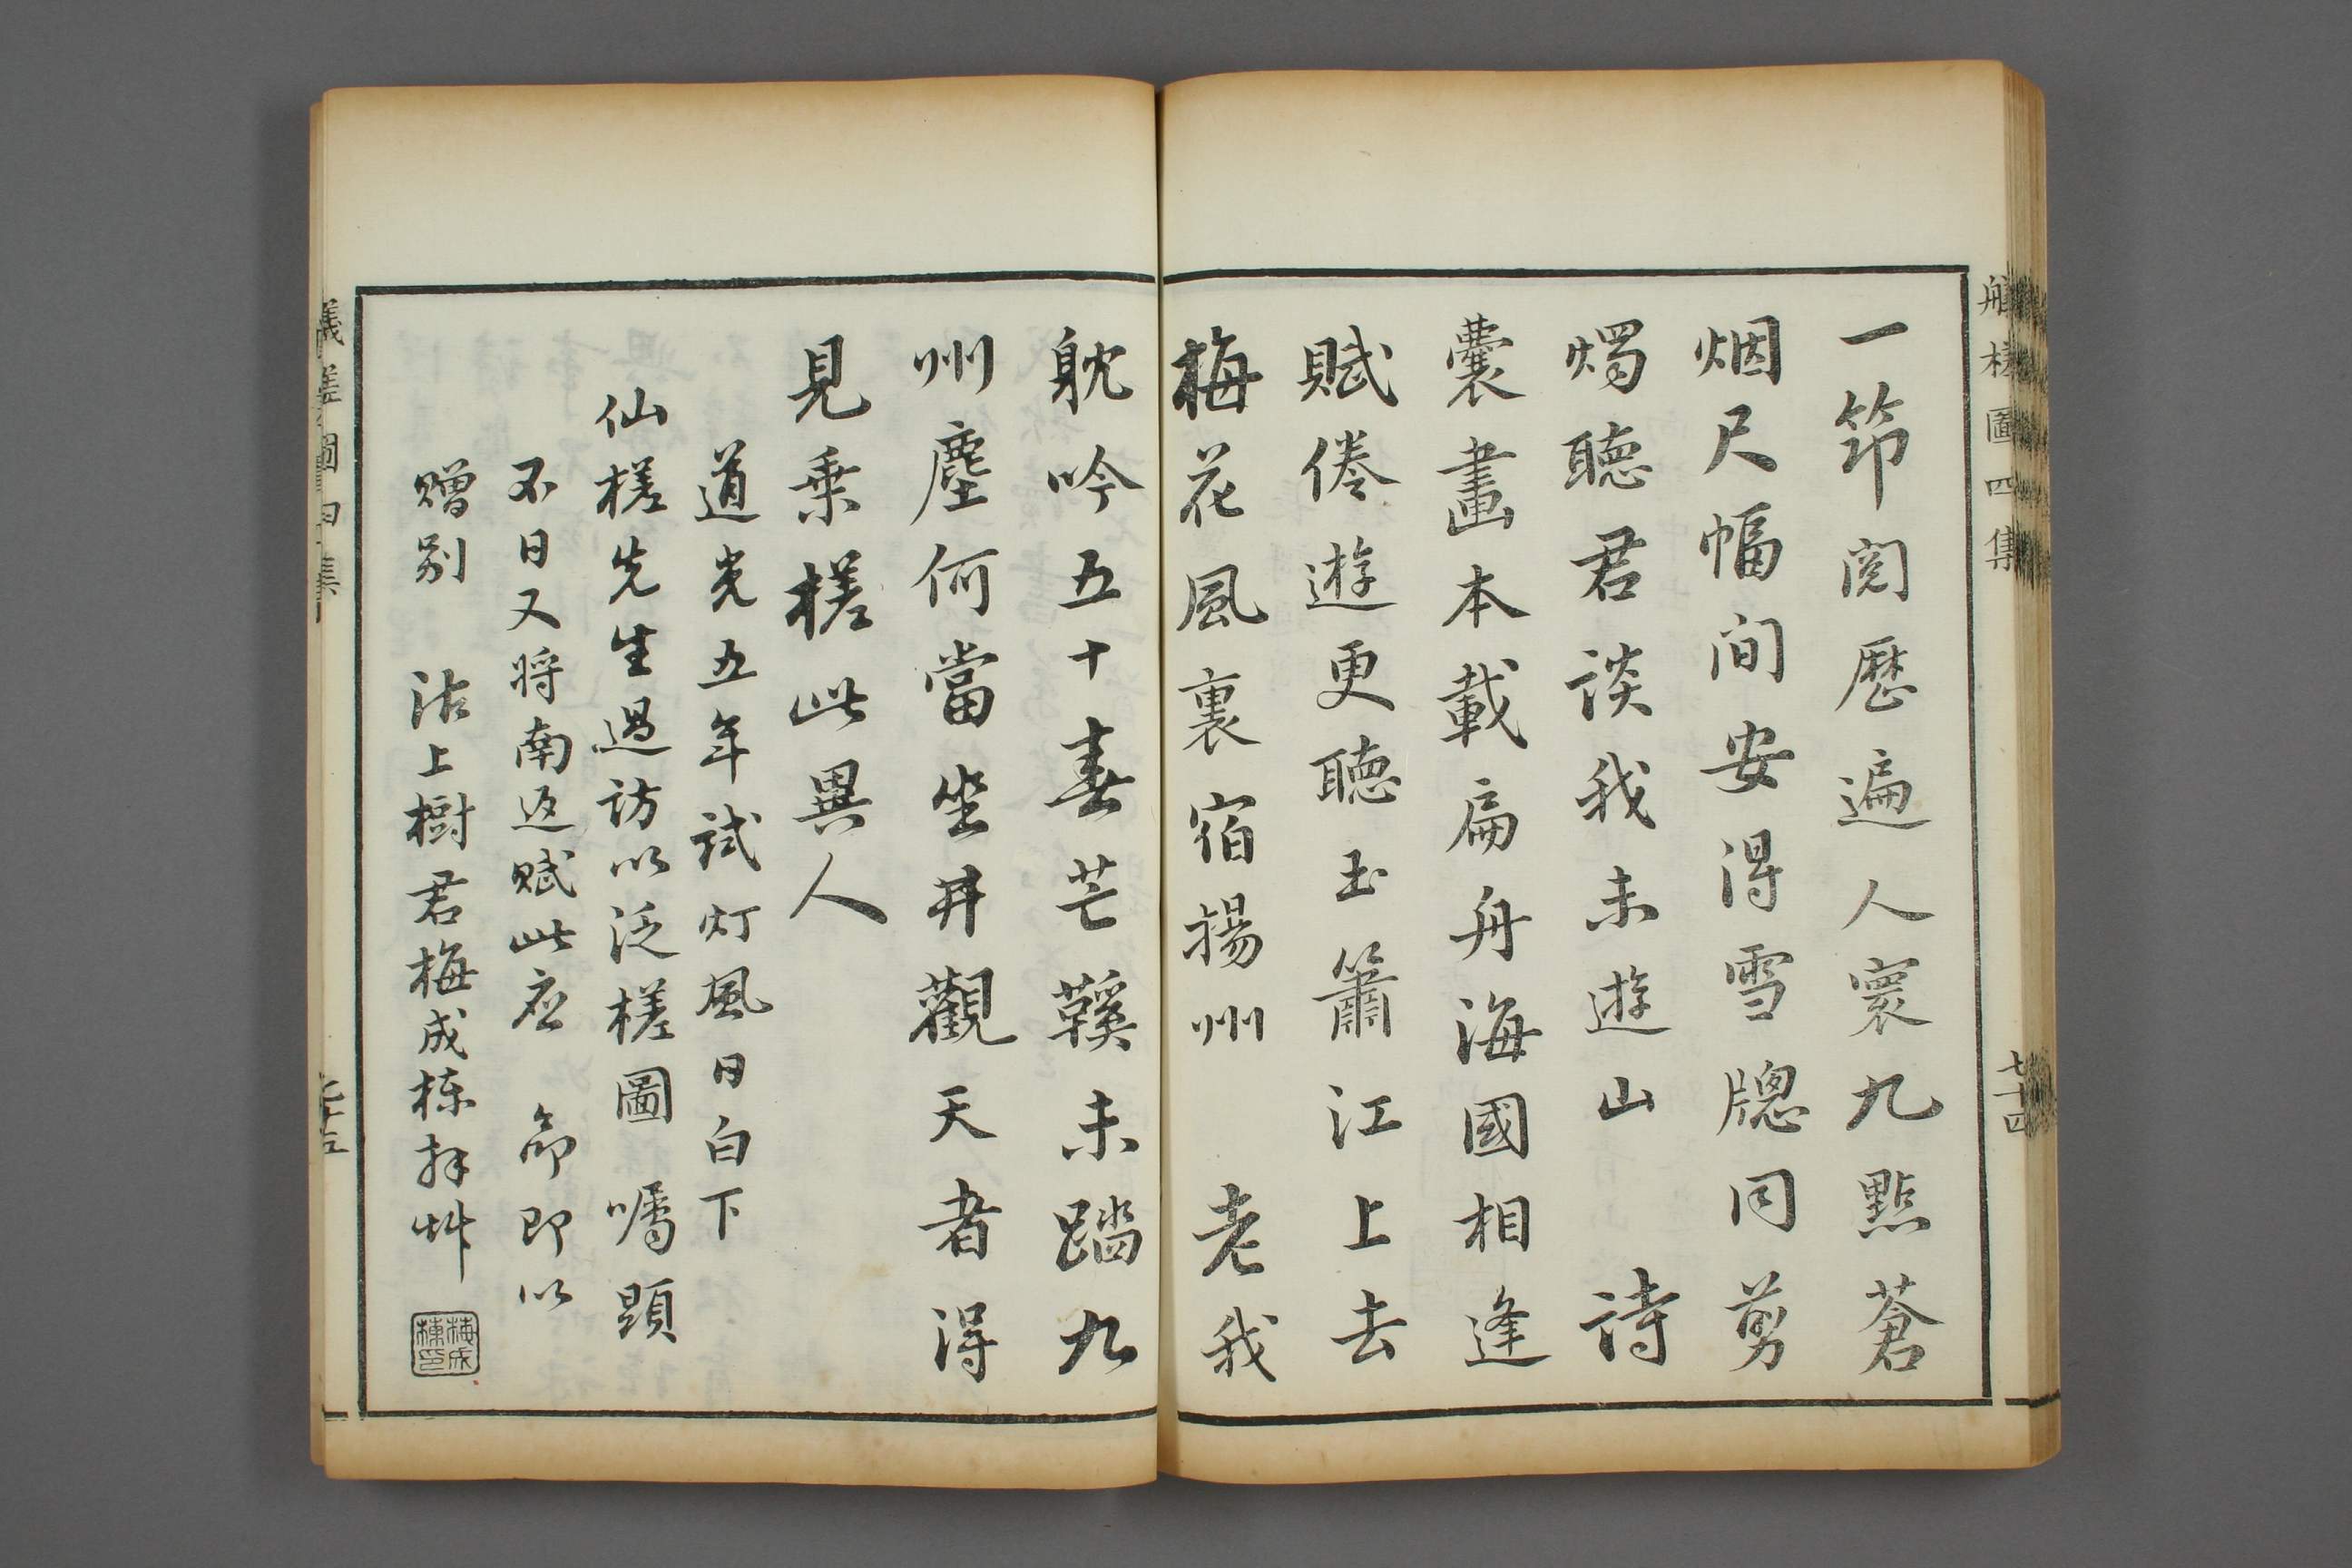 艤槎圖四集
七十四
一笻閱歷遍人寰九點蒼
烟尺幅间安得雪牕同剪
燭聽君談我未遊山　詩
囊畫本載扁舟海國相逢
賦倦遊更聽玉簫江上去
梅花風裏宿揚州　老我
躭吟五十春芒鞵未踏九
州塵何當坐井觀天者得
見乗槎此異人
道光五年試灯風日白下
仙槎先生過訪以泛槎圖囑題
不日又将南返賦此应　命即以
贈别　沽上樹君梅成栋拜艸
梅成棟印
艤槎圖四集
七十五